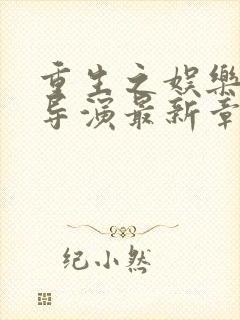 重生之娱樂
导演最新章
纪小然